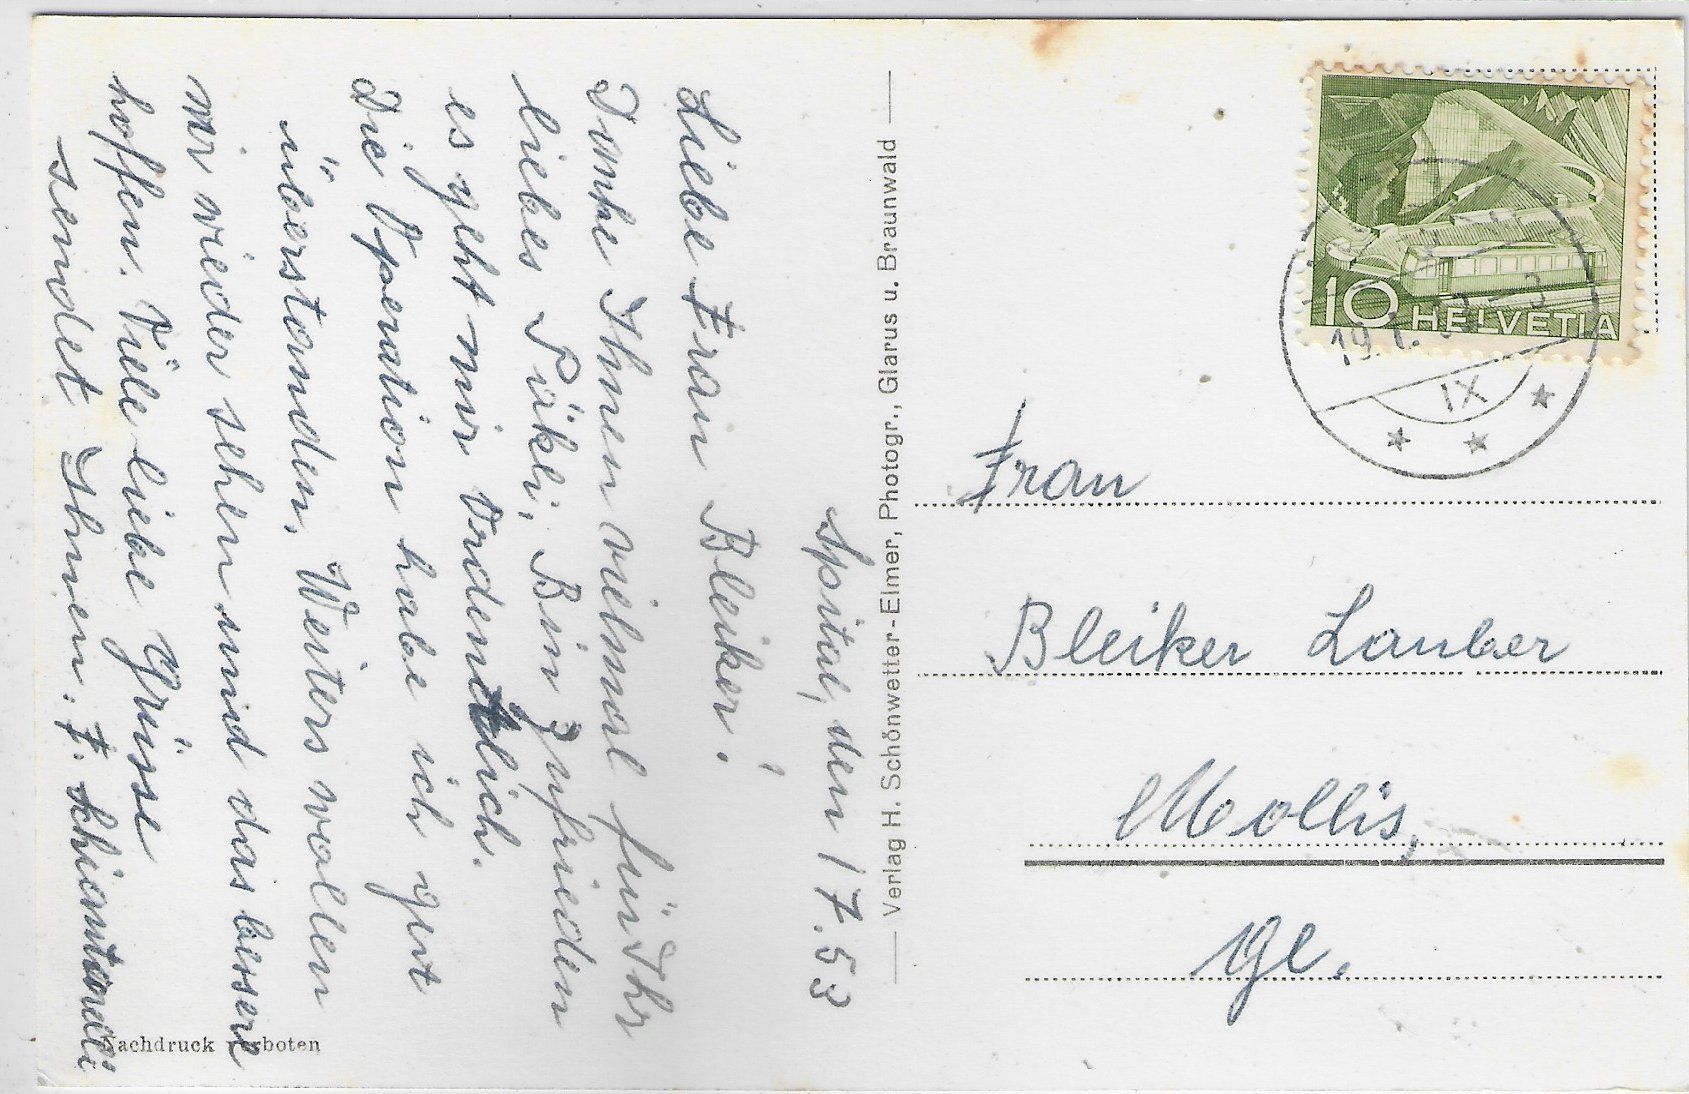 Spital, den 17.53
Liebe Frau Bleiker!
Danke Ihnen vielmal für Ihr
liebes Päkli, Bin zufrieden
es geht mir ordentlich.
Die Operation habe ich gut
überstanden. Weiters wollen
wir wieder sehen und das bessere
hoffen. Viele liebe Grüsse
sendet Ihnen. F.
Nachdruck verboten
Verlag H. Schönwetter-Elmer, Photogr., Glarus u. Braunwald
10 HELVETIA
19.1.
IX
Frau
Bleiker Lauber
Mollis,
Gl.